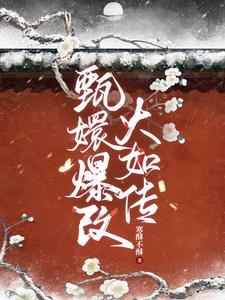 甄嬛爆改
大如传
寒酥不酥
著